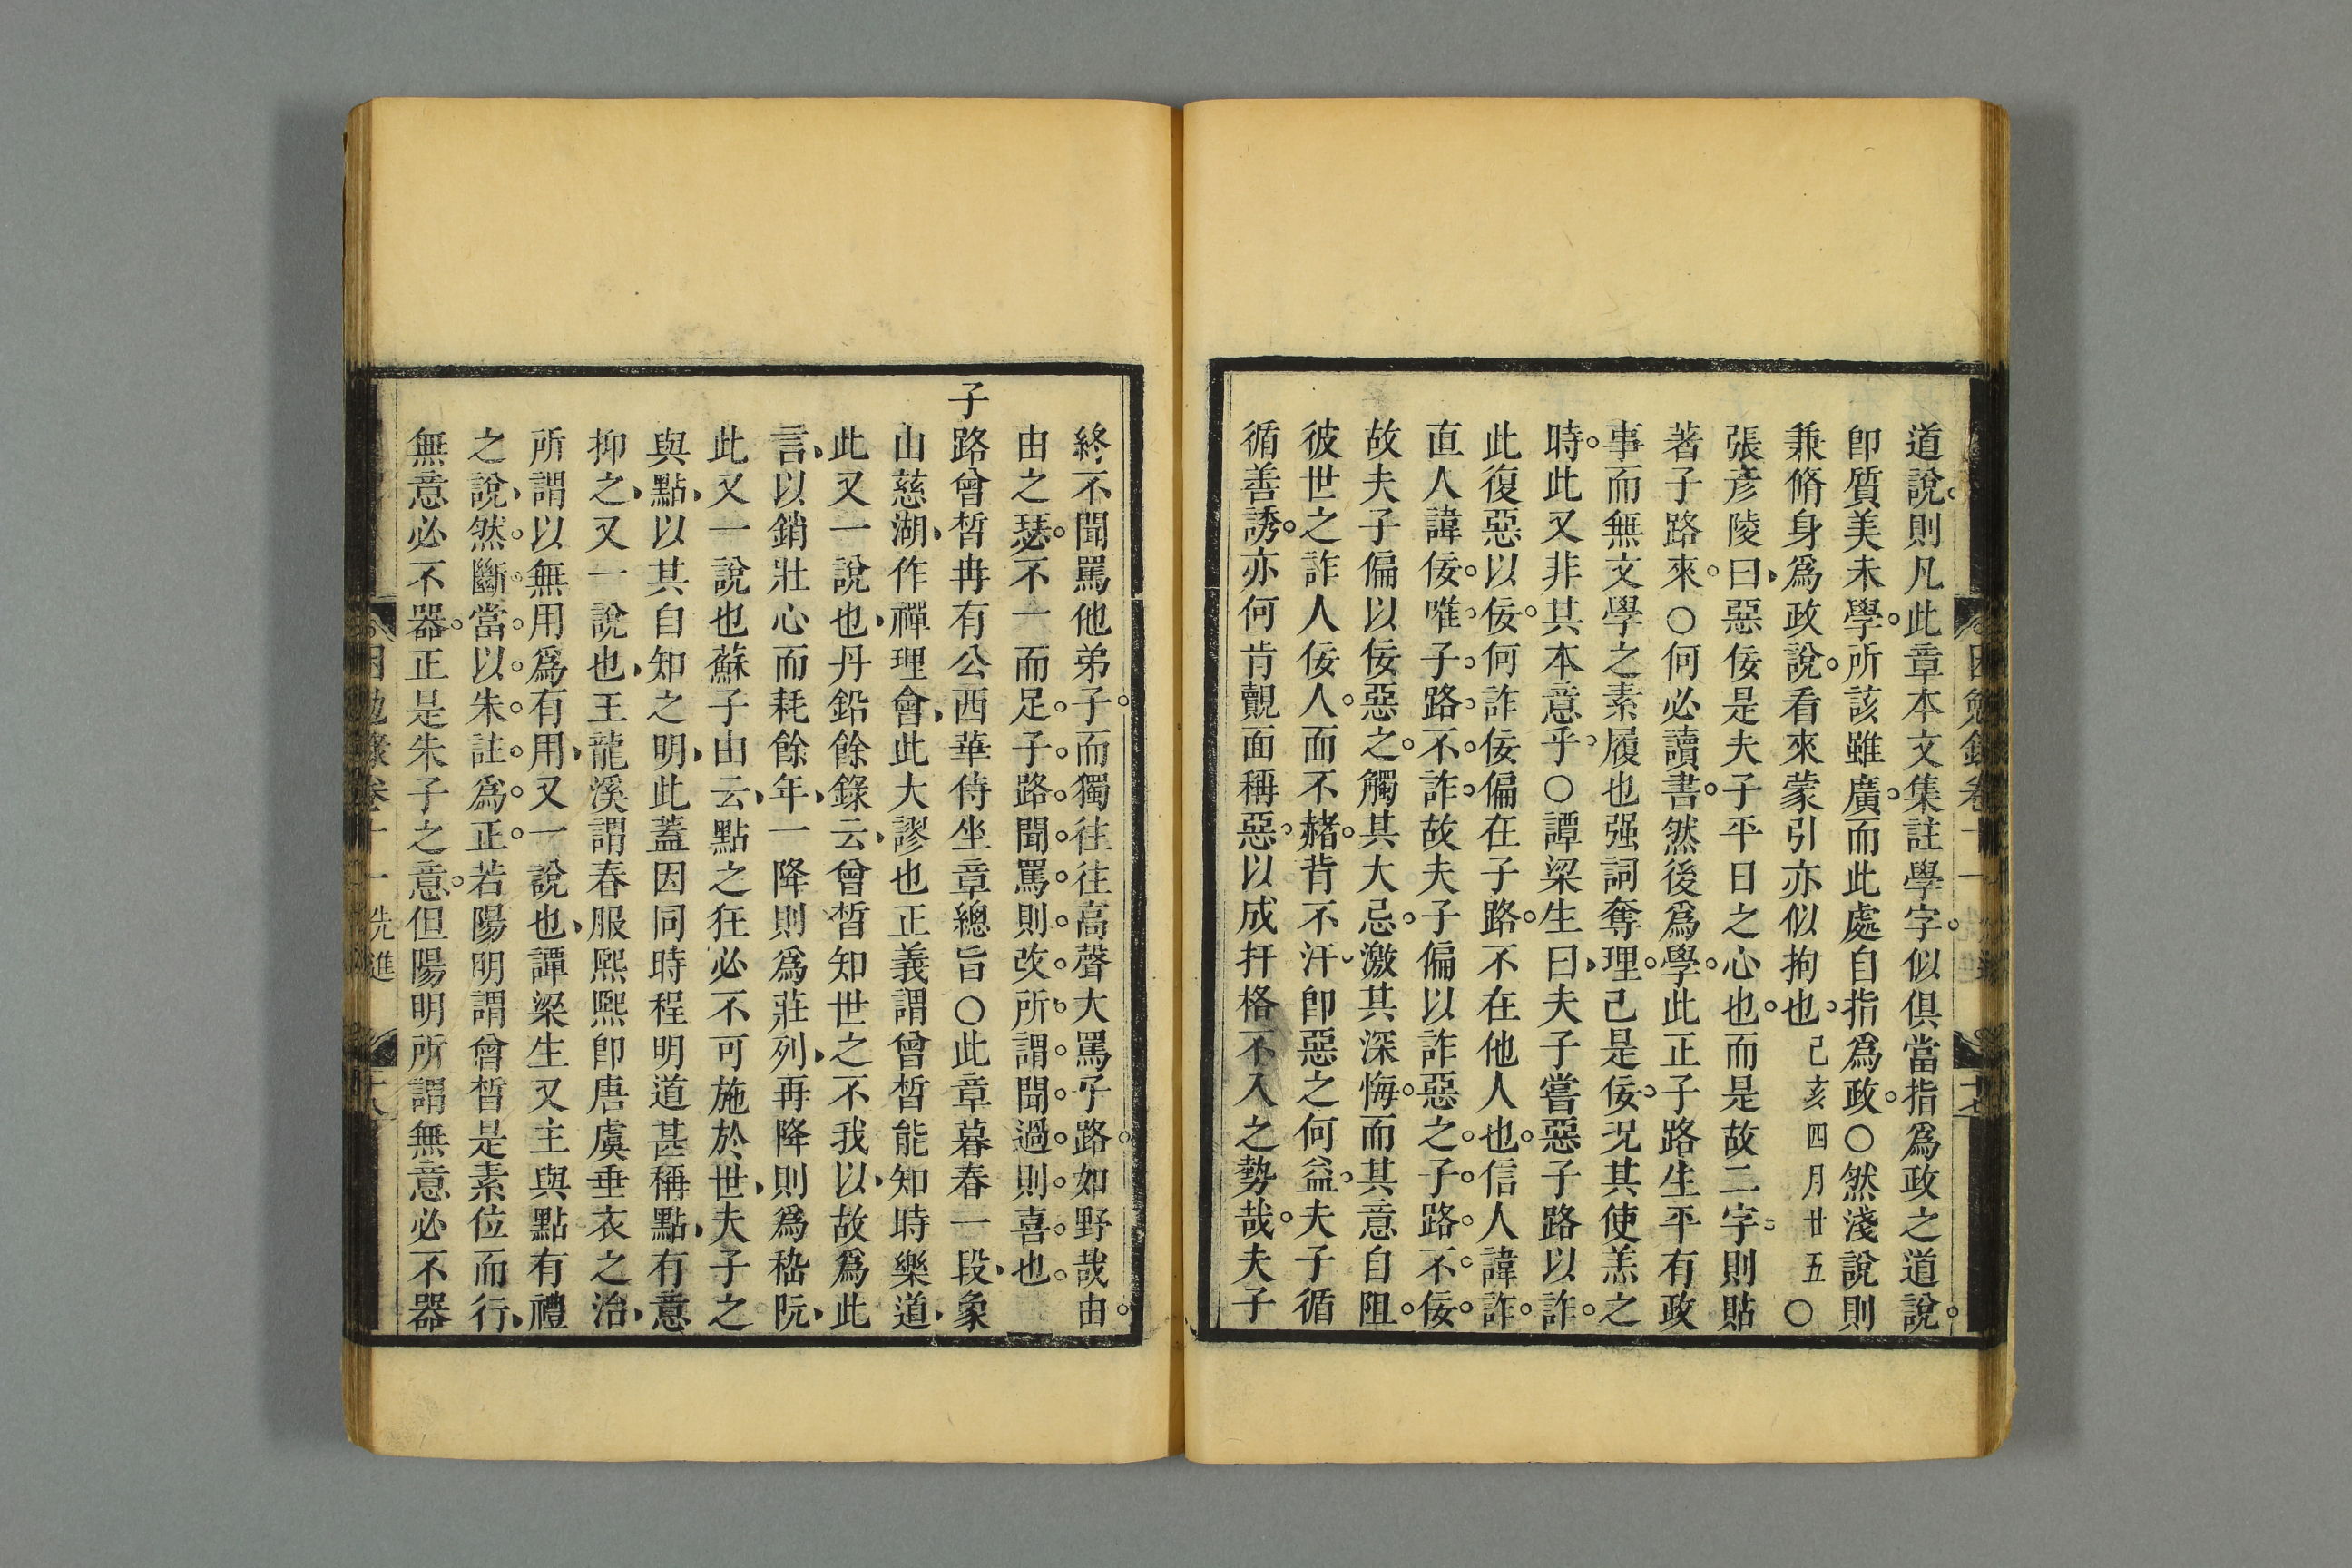 道說則凡此章本文集註學字似俱當指爲政之道說
卽質美未學所該雖廣而此處自指爲政○然淺說則
兼脩身爲政說看來蒙引亦似拘也己亥四月廿五○
張彥陵曰惡佞是夫子平日之心也而是故二字則貼
著子路來○何必讀書然後爲學此正子路生平有政
事而無文學之素履也强詞奪理己是佞况其使羔之
時此又非其本意乎○譚梁生曰夫子嘗惡子路以詐
此復惡以佞何詐佞偏在子路不在他人也信人諱詐
直人諱佞唯子路不詐故夫子偏以詐惡之子路不佞
故夫子偏以佞惡之觸其大忌激其深悔而其意自阻
彼世之詐人佞人面不赭背不汗卽惡之何益夫子循
循善誘亦何肯覿面稱惡以成扞格不入之勢哉夫子
終不聞罵他弟子而獨往往高聲大罵子路如野哉由
由之瑟不一而足子路聞罵則改所謂聞過則喜也
子路曾皙冉有公西華侍坐章總旨○此章暮春一段象
山慈湖作禪理會此大謬也正義謂曾皙能知時樂道
此又一說也丹鉛餘錄云曾皙知世之不我以故爲此
言以銷壯心而耗餘年一降則爲莊列再降則爲嵇阮
此又一說也蘇子由云點之狂必不可施於世夫子之
與點以其自知之明此蓋因同時程明道甚稱點有意
抑之又一說也王龍溪謂春服熙熙卽唐虞垂衣之治
所謂以無用爲有用又一說也譚梁生又主與點有禮
之說然斷當以朱註爲正若陽明謂曾皙是素位而行
無意必不器正是朱子之意但陽明所謂無意必不器
困勉錄卷十一 先進 十八